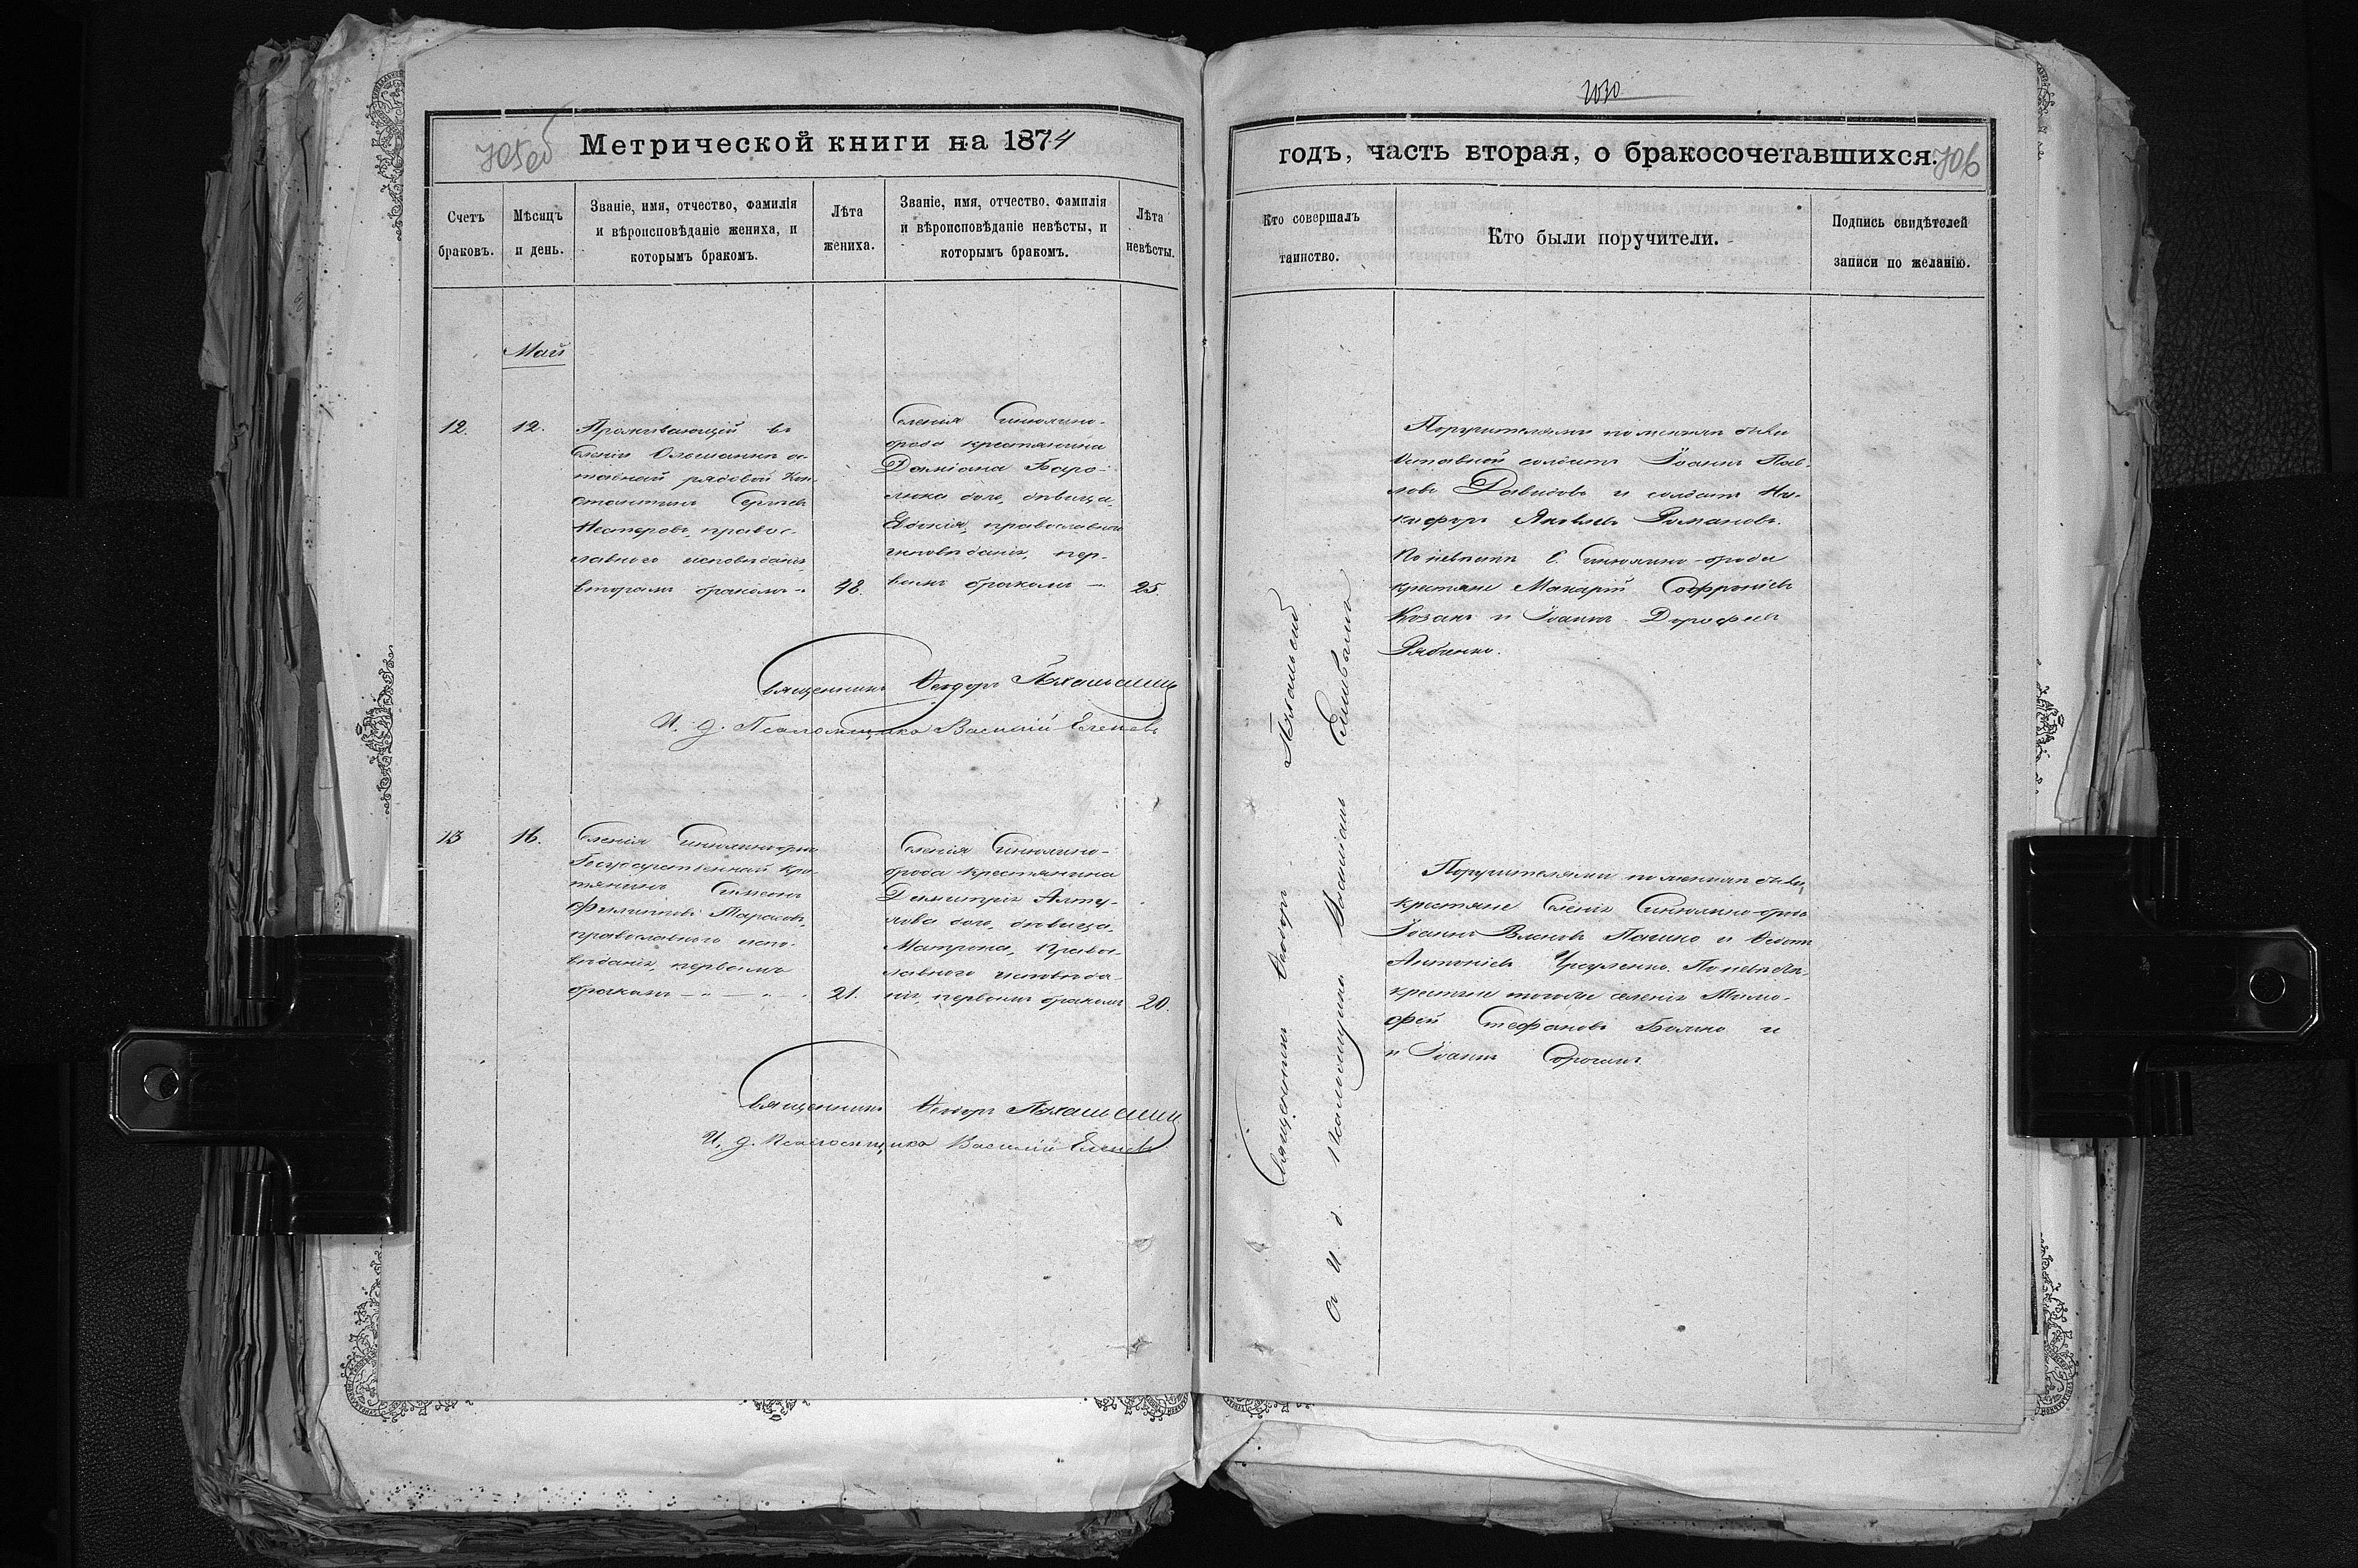 705об
Метрической книги на 1874
Счетъ браковъ.
Мѣсяцъ и день.
Званіе, имя, отчество, фамилія и вѣроисповѣданіе жениха, и которымъ бракомъ.
Лѣта жениха.
Званіе, имя, отчество, фамилія и вѣроисповѣданіе невѣсты, и которымъ бракомъ.
Лѣта невѣсты.
Май
12.
12.
Проживающій въ
селеніи Ольшанкѣ от-
тавной рядовой Кон-
стантинъ Сергѣевъ
Нестеровъ, правос-
лавнаго исповѣданія,
вторымъ бракомъ
48.
Селенія Синюхино-
брода крестьянина
Даміана
дочь, дѣвица
Евдокія, православнаго
исповѣданія, пер-
вымъ бракомъ
25.
Священникъ Ѳеодоръ
И. д. Псаломщика Василій
13
16.
Селенія Синюхиноброда
Государственный кре-
тянинъ Симеонъ
Филипповъ Тарасовъ,
православнаго испо-
вѣданія, первымъ
бракомъ
21.
Селенія Синюхино-
брода крестьянина
Димитрія
дочь, дѣвица
Матрона, Правос-
лавнаго исповѣда-
нія, первымъ бракомъ
20.
Священникъ Ѳеодоръ
И. д. Псаломщика Василій
2030
годъ, часть вторая, о бракосочетавшихся.
706
Кто совершалъ таинство.
Кто были поручители.
Подпись свидѣтелей записи по желанію.
Священникъ Ѳеодоръ
съ И. д. Псаломщика Василіемъ
Поручителями по женихѣ были
отставной солдатъ Іоаннъ Пав-
ловъ Давидовъ и солдатъ Ни-
кифоръ Яковлевъ Романовъ.
По невѣстѣ С. Синюхино-брода
крестьяне Макарій Софроніевъ
Козакъ и Іоаннъ Дорофеевъ
Рябченко.
Поручителями по женихѣ были,
крестьяне Селенія Синюхино-брода
Іоаннъ и Ѳеодотъ
Антоніевъ По невѣстѣ
крестьяне тогоже селенія Тимо-
фей Стефановъ и
и Іоаннъ Сорочанъ